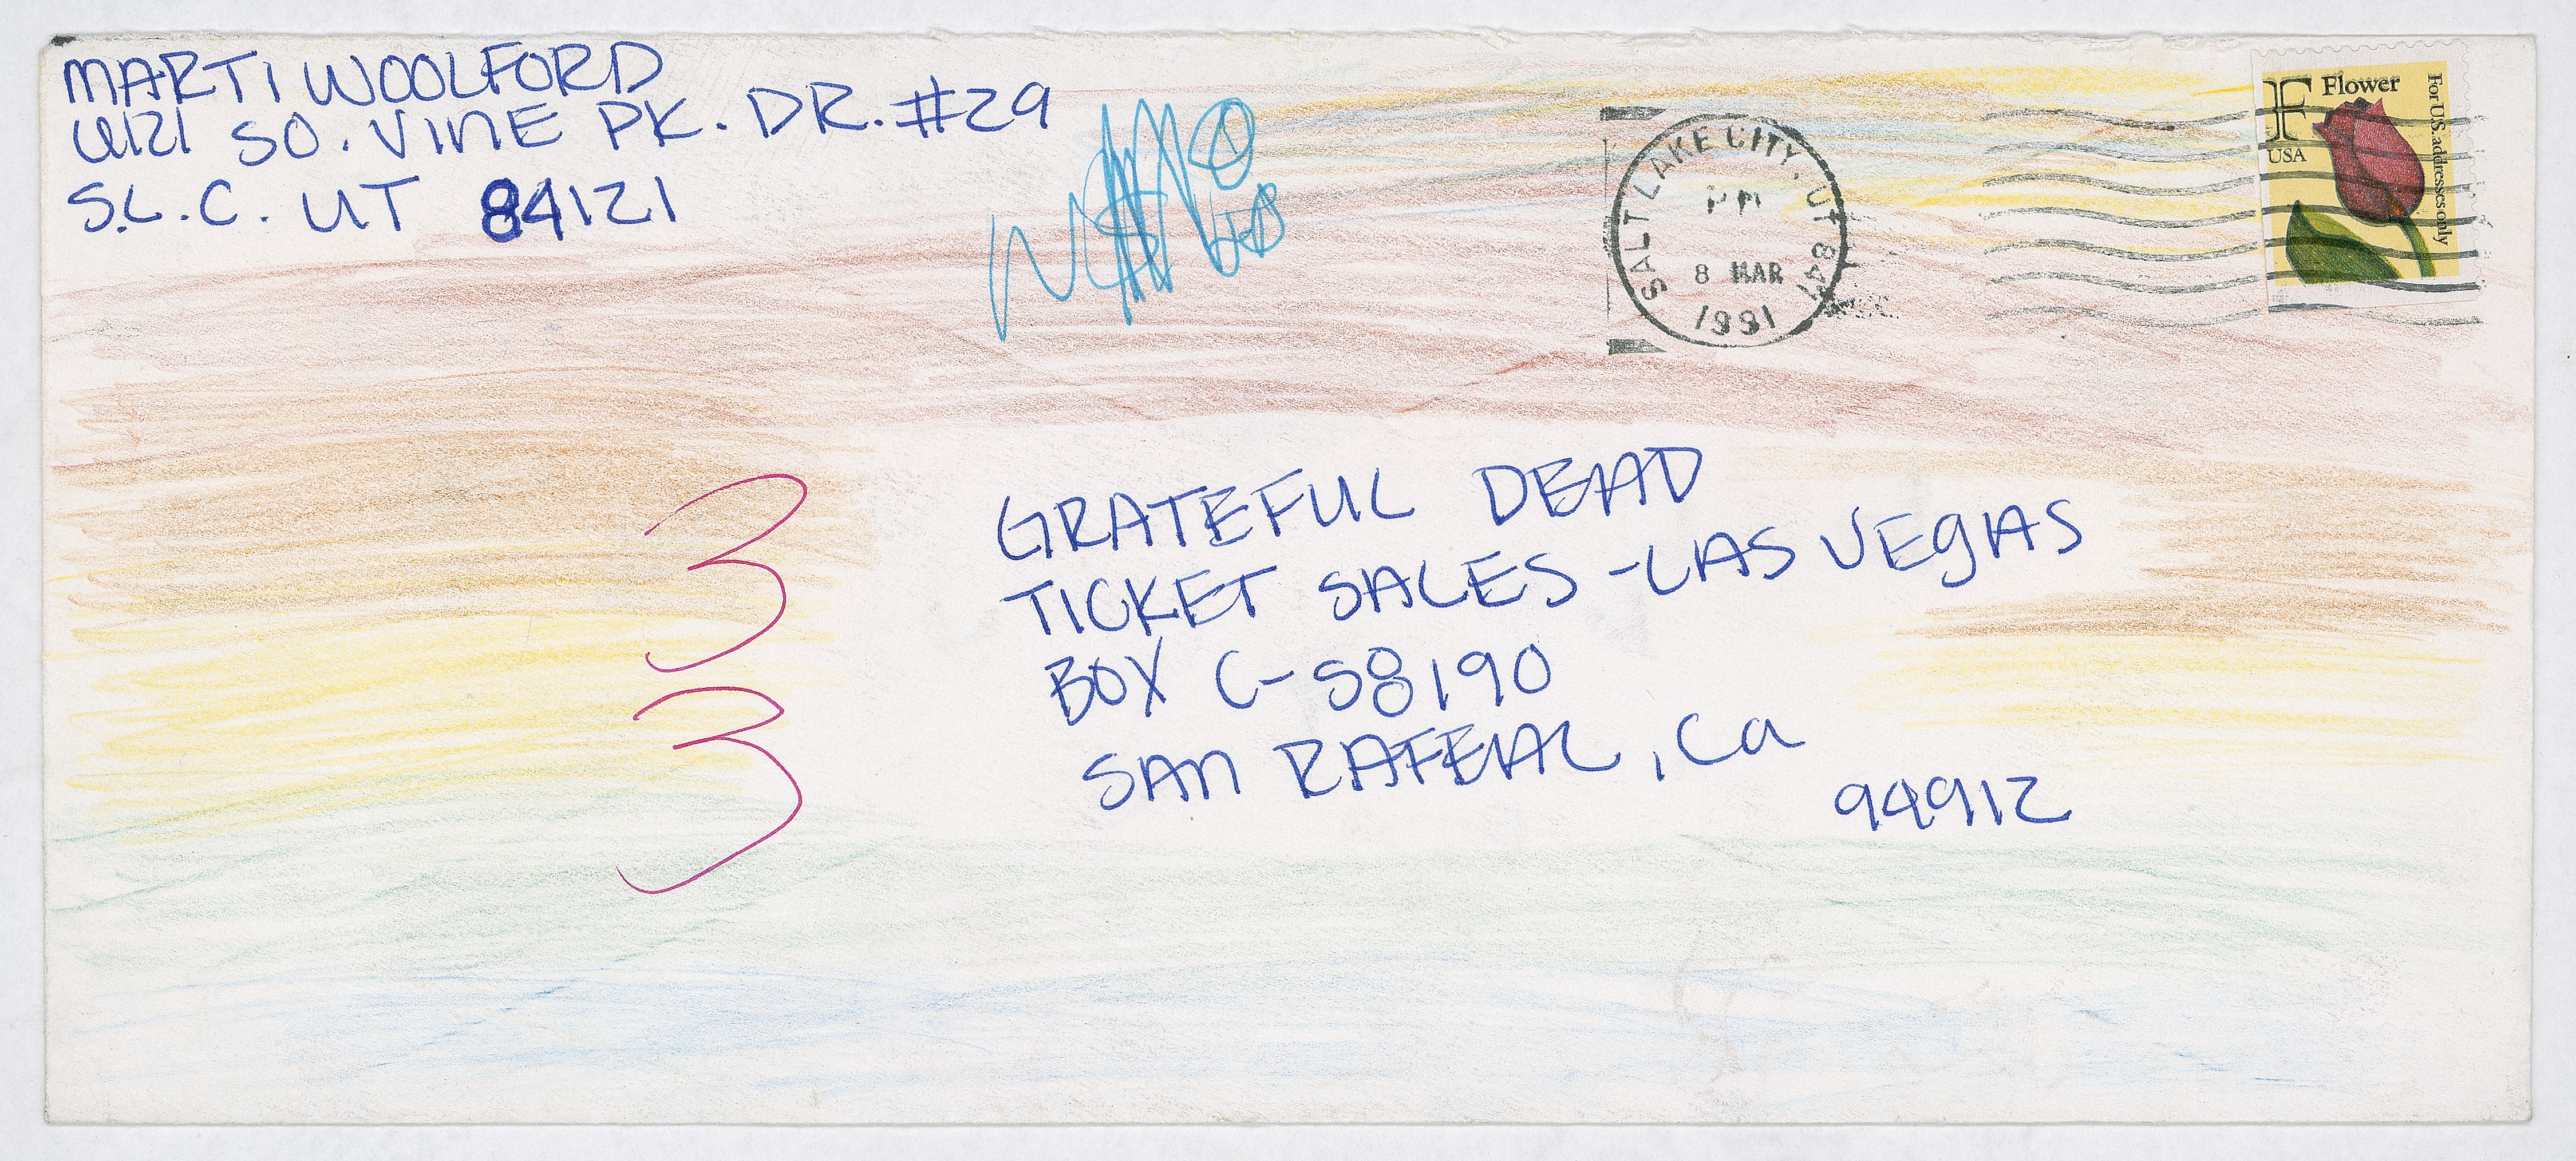 MARTI WOOLFORD
SO. VINE PK. DR. #29
S.L.C. UT 84121
SALT LAKE CITY, UT 841
PM
8 MAR
1991
F Flower
USA
For U.S. addresses only
3
3
GRATEFUL DEAD
TICKET SALES - LAS VEGAS
BOX C-S8190
SAN RAFEAL, Ca
94912